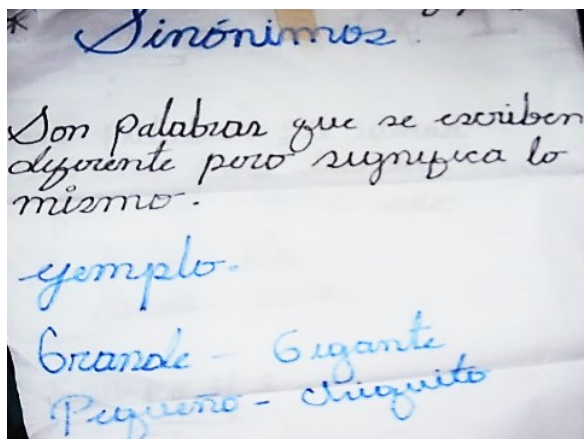 * Sinónimos.
Son palabras que se escriben
diferente pero significa lo
mismo.
ejemplo.
Grande - Gigante
Pequeño - chiquito